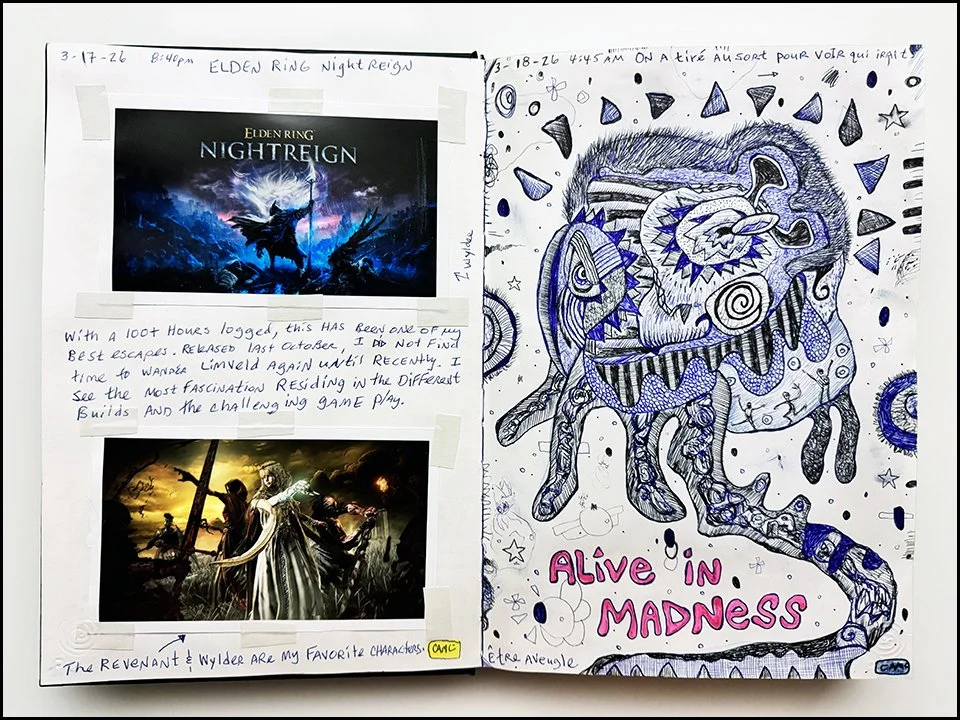 3-17-26 8:40pm ELDEN RING NightREIGN
ELDEN RING
NIGHTREIGN
↑ Wylder
With a 100+ Hours logged, this HAS BEEN ONE OF my
BEST escapes. RELEASED LAST OctobeR, I DID NOT FIND
time to WANDER LIMVELD AGAIN until RECENTLY. I
SEE the MOST FASCINATION RESIDING in the DIFFERENT
Builds AND the challenging GAME PlAy.
The REVENANT & WYLDER ARE My FAVORITE CHARACTERS.
CMC
3-18-26 4:45AM ON A tiRÉ AU SORt pouR VOIR qui iRAit
ALIVE iN
MADNESS
ÊtRE AVEUGLE
CMC